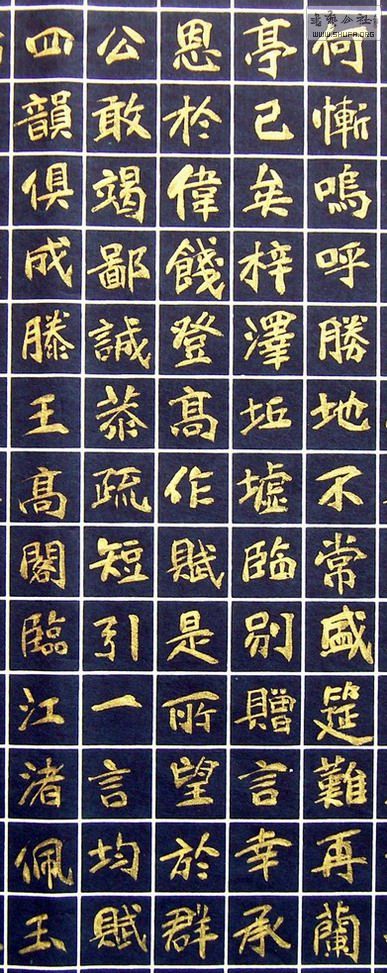 書藝公社
WWW.SHUFA.ORG
何慚嗚呼勝地不常盛筵難再蘭
亭已矣梓澤坵墟臨別贈言幸承
恩於偉餞登高作賦是所望於群
公敢竭鄙誠恭疏短引一言均賦
四韻俱成滕王高閣臨江渚佩玉